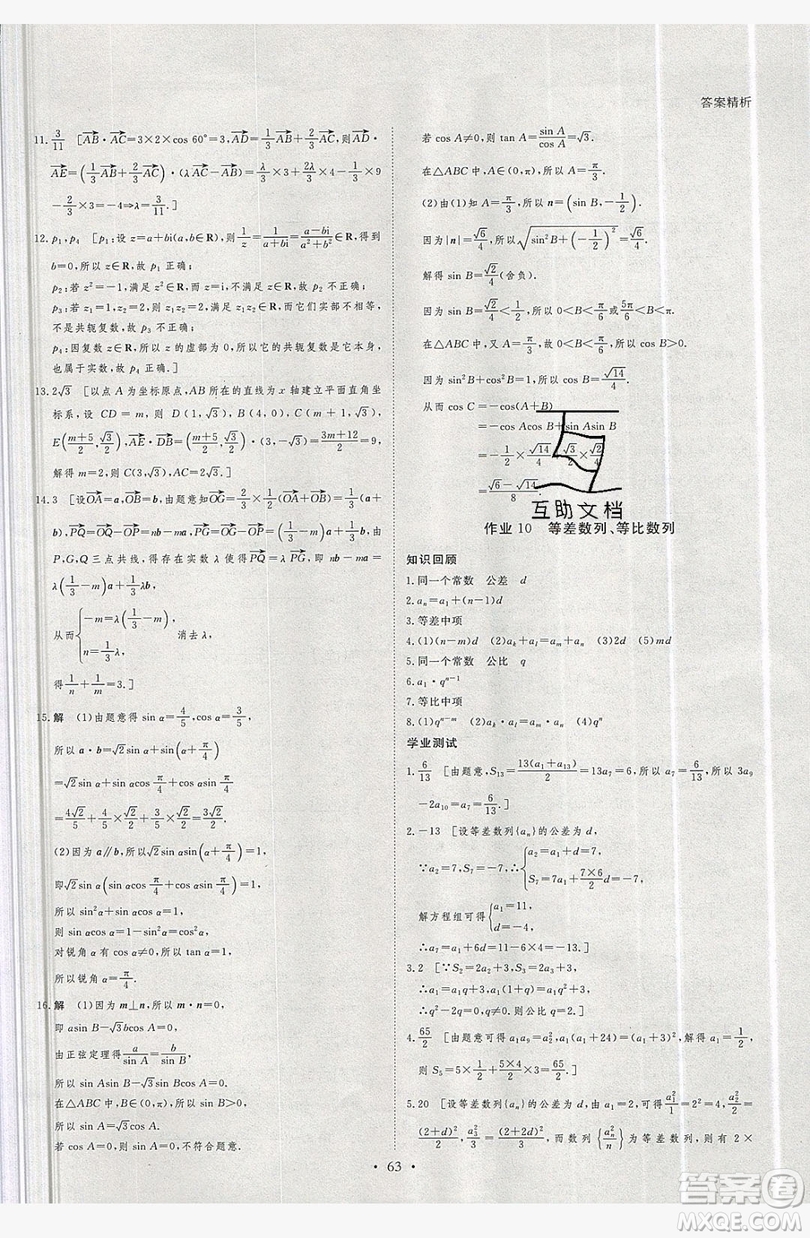 答案精析
11. 3/11 [AB→·AC→=3×2×cos 60°=3, AD→=1/3 AB→+2/3 AC→,则AD→·
AE→=(1/3 AB→+2/3 AC→)·(λAC→-AB→)=λ/3×3+2λ/3×4-1/3×9
-2/3×3=-4⇒λ=3/11.]
12. p₁,p₄ [p₁:设z=a+bi(a,b∈R),则1/z=1/(a+bi)=(a-bi)/(a²+b²)∈R,得到
b=0,所以z∈R,故p₁正确;
p₂:若z²=-1,满足z²∈R,而z=i,不满足z∈R,故p₂不正确;
p₃:若z₁=1,z₂=2,则z₁z₂=2,满足z₁z₂∈R,而它们实部不相等,
不是共轭复数,故p₃不正确;
p₄:因复数z∈R,故z的虚部为0,所以它的共轭复数是它本身,
也属于实数,故p₄正确.]
13. 2√3 [以点A为坐标原点,AB所在的直线为x轴建立平面直角坐
标系,设CD=m,则D(1,√3),B(4,0),C(m+1,√3),
E((m+5)/2,√3/2),AE→·DB→=((m+5)/2,√3/2)·(3,-√3)=(3m+12)/2=
9.解得m=2,C(3,√3),|AC→|=√(3²+(√3)²)=2√3.]
14. 3 [设OA→=a,OB→=b,由题意知OG→=2/3×1/2(OA→+OB→)=1/3(a+
b),PQ→=OQ→-OP→=nb-ma,PG→=OG→-OP→=(1/3-m)a+1/3b,由
P,G,Q三点共线,得存在实数λ使得PQ→=λPG→,即nb-ma=
λ(1/3-m)a+1/3λb,
从而{-m=λ(1/3-m), n=1/3λ, 消去λ,
得1/n+1/m=3.]
15. 解 (1)由题意得sin α=4/5,cos α=3/5,
所以a·b=√2sin α+5√2cos αsin(α+π/4)
=√2sin α+5√2cos α(sin αcos π/4+cos αsin π/4)
=4√2/5+5√2×3/5×(4/5×√2/2+3/5×√2/2)
(2)因为a∥b,所以√2sin αsin(α+π/4)=1,
即√2sin α(sin αcos π/4+cos αsin π/4)=1,
所以sin²α+sin αcos α=1,
所以sin αcos α=1-sin²α=cos²α,
对锐角α有cos α≠0,所以tan α=1,
所以锐角α=π/4.
16. 解 (1)因为m⊥n,所以m·n=0,
即asin B-√3bcos A=0,
由正弦定理得a/sin A=b/sin B,
所以sin Asin B-√3sin Bcos A=0.
在△ABC中,B∈(0,π),sin B>0,
所以sin A=√3cos A.
若cos A=0,则sin A=0,不符合题意.
若cos A≠0,则tan A=sin A/cos A=√3.
在△ABC中,A∈(0,π),所以A=π/3.
(2)由(1)知A=π/3,所以n=(sin B,-1/2).
因为|n|=√6/4,所以√(sin²B+(-1/2)²)=√6/4.
解得sin B=√2/4(舍负).
因为sin B=√2/4<1/2,所以0<B<π/6或5π/6<B<π.
在△ABC中,又A=π/3,所以0<B<π/6,所以cos B>0.
所以cos B=√14/4.
从而cos C=-cos(A+B)
=-cos Acos B+sin Asin B
=-1/2×√14/4+√3/2×√2/4
=(√6-√14)/8.
互助文档
作业10 等差数列、等比数列
知识回顾
1.同一个常数 公差 d
2.aₙ=a₁+(n-1)d
3.等差中项
4.(1)(n-m)d (2)aₖ+aₗ=aₘ+aₙ (3)2d (5)md
5.同一个常数 公比 q
6.a₁·qⁿ⁻¹
7.等比中项
8.(1)qⁿ⁻ᵐ (2)aₖ·aₗ=aₘ·aₙ (4)q
学业测试
1. 6/13 [由题意,S₁₃=13(a₁+a₁₃)/2=13a₇=6,a₇=6/13,所以3a₉
-2a₁₀=a₇=6/13.]
2.-13 [设等差数列{aₙ}的公差为d,
∵a₂=7,S₇=-7,∴{a₂=a₁+d=7, S₇=7a₁+(7×6)/2 d=-7,
解方程组可得{a₁=11, d=-4, ∴a₇=a₁+6d=11-6×4=-13.]
3.2 [∵S₂=2a₂+3,S₃=2a₃+3,
∴a₁=a₁q+3,a₁(1+q)=a₁q²+3,
∴q²-2q=0,q≠0.则公比q=2.]
4. 65/2 [由题意可得a₁a₉=a₂²,a₁(a₁+24)=(a₁+3)²,解得a₁=1/2,
S₅=5×1/2+(5×4)/2×3=65/2.]
5.20 [设等差数列{aₙ}的公差为d,由题意知a₁=2,所以a₁²/a₁=2,a₂²/a₂